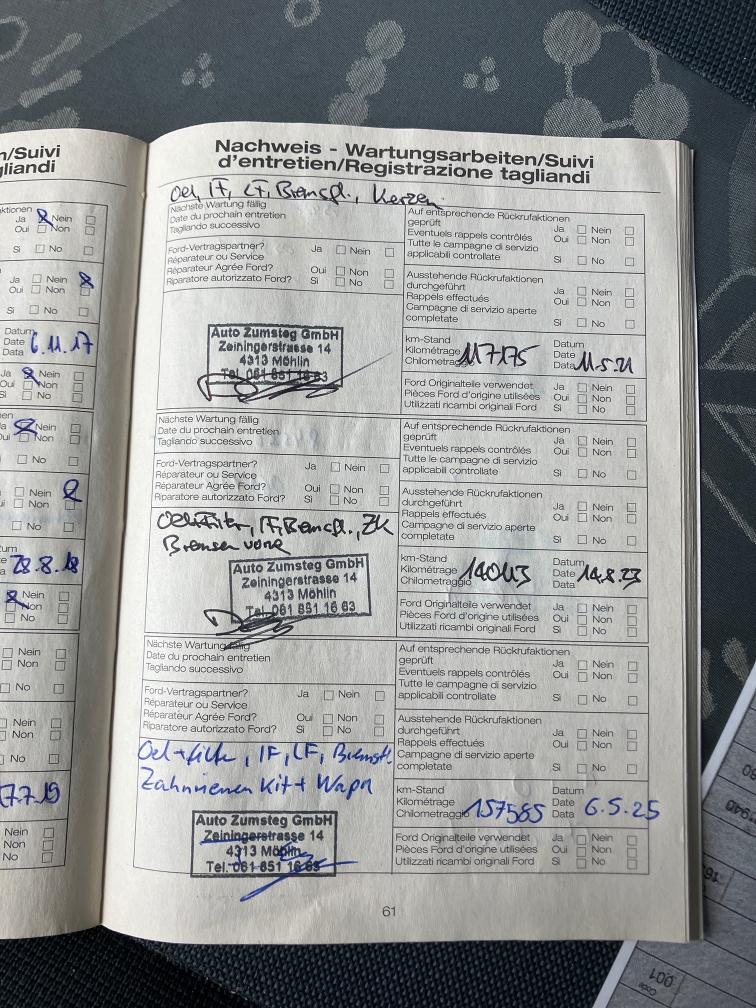 n/Suivi
gliandi
ktionen
Ja Nein
Oui Non
Si No
Ja Nein
Oui Non
Si No
Datum
Date
Data
6.11.17
Ja Nein
Oui Non
Si No
Nein
Non
No
Nein
Non
No
28.8.18
Nein
Non
No
Nein
Non
No
Nein
Non
No
17.7.19
Nein
Non
No
Nachweis - Wartungsarbeiten/Suivi
d'entretien/Registrazione tagliandi
Oel, IF, LF, Bremsfl., Kerzen
Nächste Wartung fällig
Date du prochain entretien
Tagliando successivo
Ford-Vertragspartner? Ja Nein
Réparateur ou Service
Réparateur Agrée Ford? Oui Non
Riparatore autorizzato Ford? Si No
Auto Zumsteg GmbH
Zeiningerstrasse 14
4313 Möhlin
Tel. 061 851 16 63
Auf entsprechende Rückrufaktionen
geprüft Ja Nein
Eventuels rappels contrôlés Oui Non
Tutte le campagne di servizio
applicabili controllate Si No
Ausstehende Rückrufaktionen
durchgeführt Ja Nein
Rappels effectués Oui Non
Campagne di servizio aperte
completate Si No
km-Stand Datum
Kilométrage Date
Chilometraggio 117175 Data 11.5.21
Ford Originalteile verwendet Ja Nein
Pièces Ford d'origine utilisées Oui Non
Utilizzati ricambi originali Ford Si No
Nächste Wartung fällig
Date du prochain entretien
Tagliando successivo
Ford-Vertragspartner? Ja Nein
Réparateur ou Service
Réparateur Agrée Ford? Oui Non
Riparatore autorizzato Ford? Si No
Oel+Filter, IF, Bremsfl., ZK
Bremsen vorne
Auto Zumsteg GmbH
Zeiningerstrasse 14
4313 Möhlin
Tel. 061 851 16 63
Auf entsprechende Rückrufaktionen
geprüft Ja Nein
Eventuels rappels contrôlés Oui Non
Tutte le campagne di servizio
applicabili controllate Si No
Ausstehende Rückrufaktionen
durchgeführt Ja Nein
Rappels effectués Oui Non
Campagne di servizio aperte
completate Si No
km-Stand Datum
Kilométrage Date
Chilometraggio Data 14.8.23
Ford Originalteile verwendet Ja Nein
Pièces Ford d'origine utilisées Oui Non
Utilizzati ricambi originali Ford Si No
Nächste Wartung fällig
Date du prochain entretien
Tagliando successivo
Ford-Vertragspartner? Ja Nein
Réparateur ou Service
Réparateur Agrée Ford? Oui Non
Riparatore autorizzato Ford? Si No
Oel+filter, IF, LF, Bremsfl.
Zahnriemen Kit + Wapu
Auto Zumsteg GmbH
Zeiningerstrasse 14
4313 Möhlin
Tel. 061 851 16 63
Auf entsprechende Rückrufaktionen
geprüft Ja Nein
Eventuels rappels contrôlés Oui Non
Tutte le campagne di servizio
applicabili controllate Si No
Ausstehende Rückrufaktionen
durchgeführt Ja Nein
Rappels effectués Oui Non
Campagne di servizio aperte
completate Si No
km-Stand Datum
Kilométrage Date
Chilometraggio 157585 Data 6.5.25
Ford Originalteile verwendet Ja Nein
Pièces Ford d'origine utilisées Oui Non
Utilizzati ricambi originali Ford Si No
61
Code
001